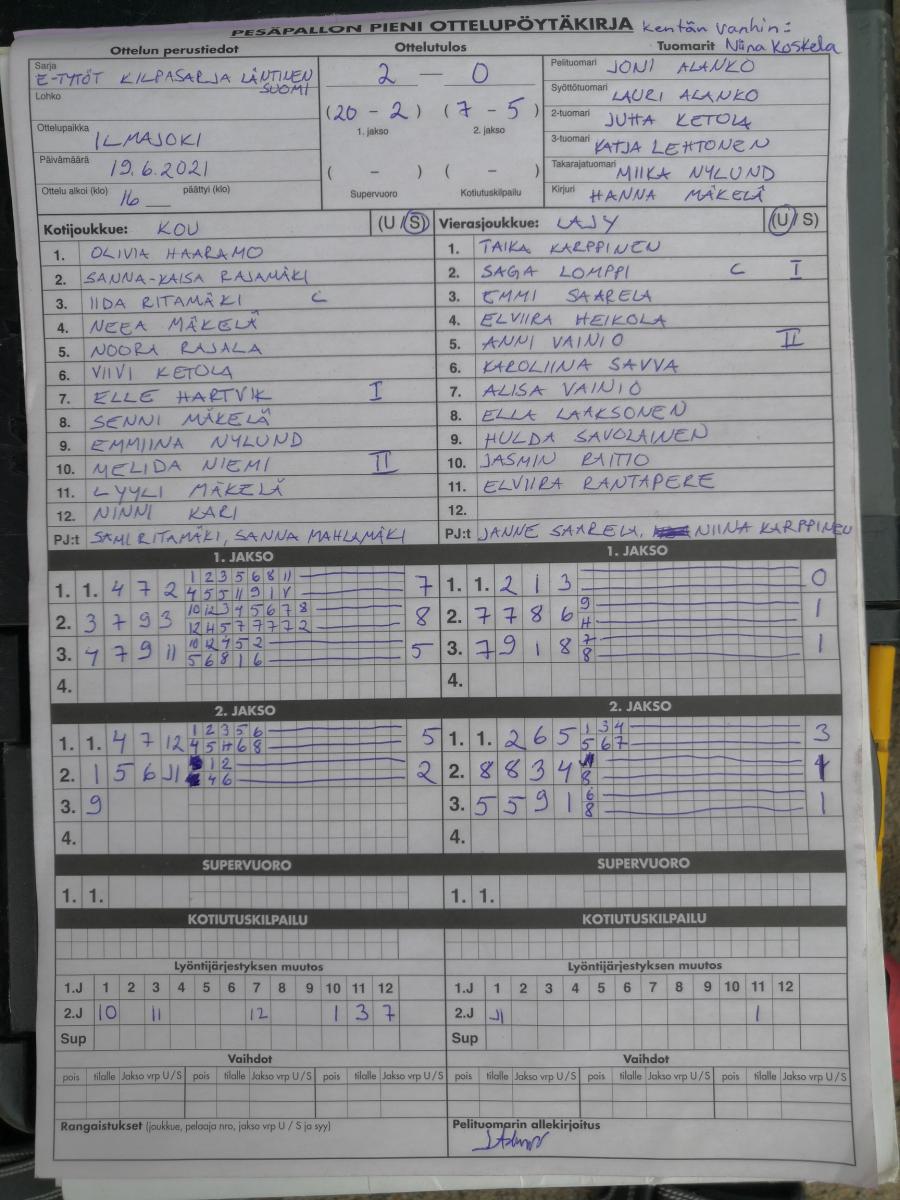 PESÄPALLON PIENI OTTELUPÖYTÄKIRJA Kentän vanhin:
Ottelun perustiedot Ottelutulos Tuomarit Niina Koskela
Sarja
E-TYTÖT KILPASARJA LÄNTINEN SUOMI
Lohko
Ottelupaikka
ILMAJOKI
Päivämäärä
19.6.2021
Ottelu alkoi (klo) päättyi (klo)
16
2 — 0
(20 - 2) (7 - 5)
1. jakso 2. jakso
( - ) ( - )
Supervuoro Kotiutuskilpailu
Pelituomari JONI ALANKO
Syöttötuomari LAURI ALANKO
2-tuomari JUHA KETOLA
3-tuomari KATJA LEHTONEN
Takarajatuomari MIIKA NYLUND
Kirjuri HANNA MÄKELÄ
Kotijoukkue: KOU (U/S)
1. OLIVIA HAARAMO
2. SANNA-KAISA RAJAMÄKI
3. IIDA RITAMÄKI C
4. NEEA MÄKELÄ
5. NOORA RAJALA
6. VIIVI KETOLA
7. ELLE HARTVIK I
8. SENNI MÄKELÄ
9. EMMIINA NYLUND
10. MELIDA NIEMI II
11. LYYLI MÄKELÄ
12. NINNI KARI
PJ:t SAMI RITAMÄKI, SANNA MAHLAMÄKI
Vierasjoukkue: LAJY (U/S)
1. TAIKA KARPPINEN
2. SAGA LOMPPI C I
3. EMMI SAARELA
4. ELVIIRA HEIKOLA
5. ANNI VAINIO II
6. KAROLIINA SAVVA
7. ALISA VAINIO
8. ELLA LAAKSONEN
9. HULDA SAVOLAINEN
10. JASMIN RAITIO
11. ELVIIRA RANTAPERE
12.
PJ:t JANNE SAARELA, NIINA KARPPINEN
1. JAKSO
1. 1. 4 7 2 1 2 3 5 6 8 11 7
4 5 5 11 9 1
2. 3 7 9 3 10 12 3 4 5 6 7 8 8
12 4 5 7 7 7 7 2
3. 4 7 9 11 10 12 4 5 2 5
5 6 8 1 6
4.
1. JAKSO
1. 1. 2 1 3 0
2. 7 7 8 6 9 1
3. 7 9 1 8 7 1
8
4.
2. JAKSO
1. 1. 4 7 12 1 2 3 5 6 5
4 5 11 6 8
2. 1 5 6 11 12 2
4 6
3. 9
4.
2. JAKSO
1. 1. 2 6 5 1 3 4 3
5 6 7
2. 8 8 3 4 1
8
3. 5 5 9 1 6 1
8
4.
SUPERVUORO SUPERVUORO
1. 1. 1. 1.
KOTIUTUSKILPAILU KOTIUTUSKILPAILU
Lyöntijärjestyksen muutos
1.J 1 2 3 4 5 6 7 8 9 10 11 12
2.J 10 11 12 1 3 7
Sup
Lyöntijärjestyksen muutos
1.J 1 2 3 4 5 6 7 8 9 10 11 12
2.J 11 1
Sup
Vaihdot Vaihdot
pois tilalle Jakso vrp U/S pois tilalle Jakso vrp U/S pois tilalle Jakso vrp U/S pois tilalle Jakso vrp U/S pois tilalle Jakso vrp U/S pois tilalle Jakso vrp U/S
Rangaistukset (joukkue, pelaaja nro, jakso vrp U / S ja syy) Pelituomarin allekirjoitus